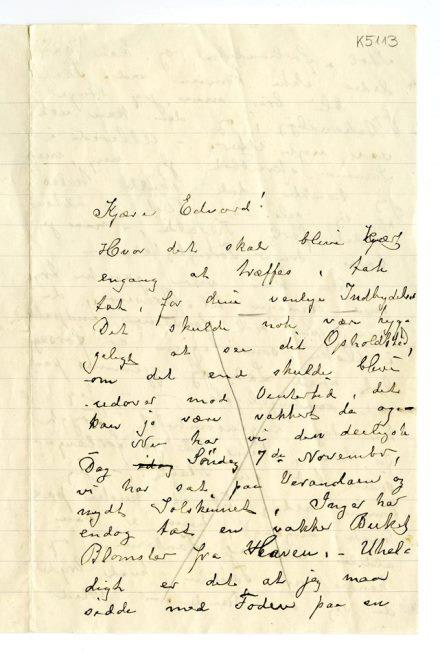 K5113
Kjære Edvard!
Hvor det skal blive kjært
engang at træffes, tak
tak, for dine venlige Indbydelser
Det skulde nok være hygge
geligt at see dit Opholdsted,
om det end skulde blive
udover mod Vintertid, det
kan jo være vakkert da og-
Nu har vi den deiligste
Dag idag Söndag 7de November,
vi har sat paa Verandaen og
nydt Solskinnet, Inger har
endog tat en vakker Buket
Blomster fra Haven, – Uhel-
digt er det at jeg maa
sidde med Foden paa en